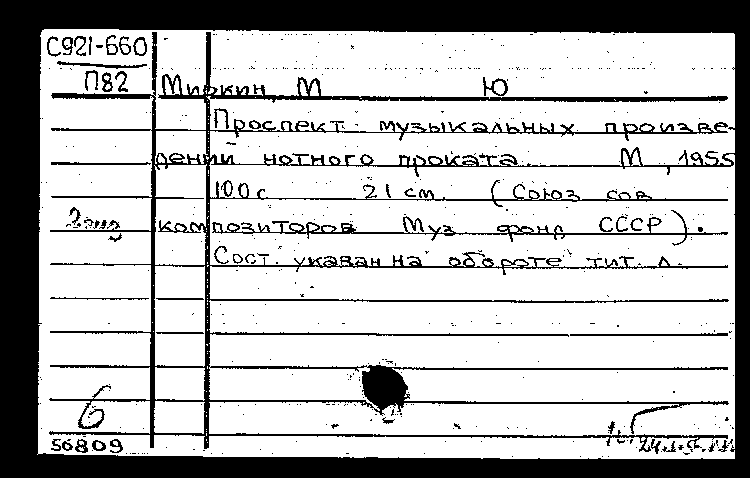 С921-660
П82 Миркин, М Ю
Проспект музыкальных произве-
дений нотного проката М, 1955
100 с 21 см. (Союз сов
2 экз композиторов Муз фонд СССР).
Сост. указан на обороте тит. л.
6
56809